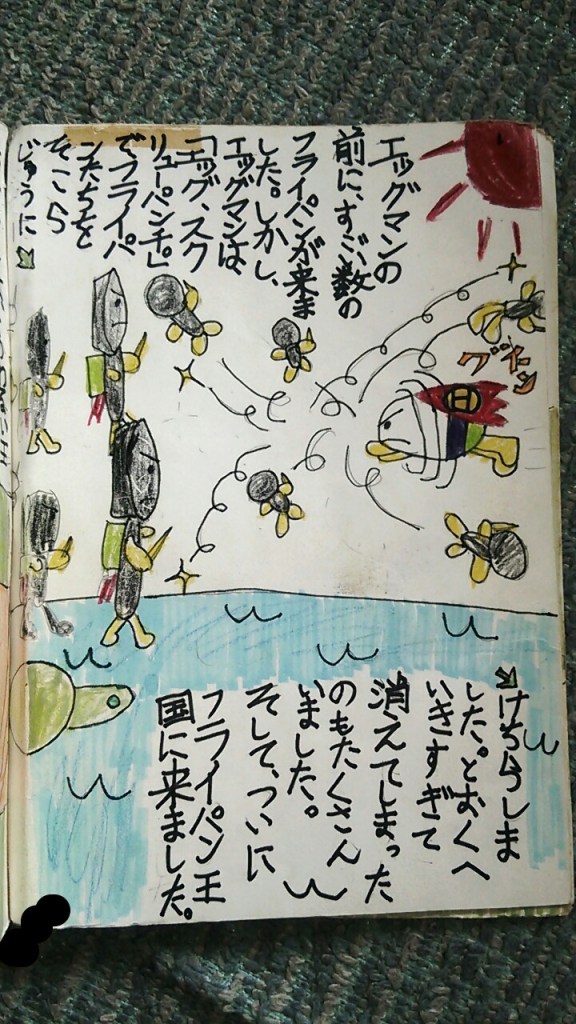 エッグマンの
前に、すごい数の
フライパンが来ま
した。しかし、
エッグマンは
「エッグ、スク
リューパンチ」
でフライパ
ンたちを
そこら
じゅうに
グイーン
日
けちらしま
した。とおくへ
いきすぎて
消えてしまった
のもたくさん
いました。
そして、ついに
フライパン王
国に来ました。